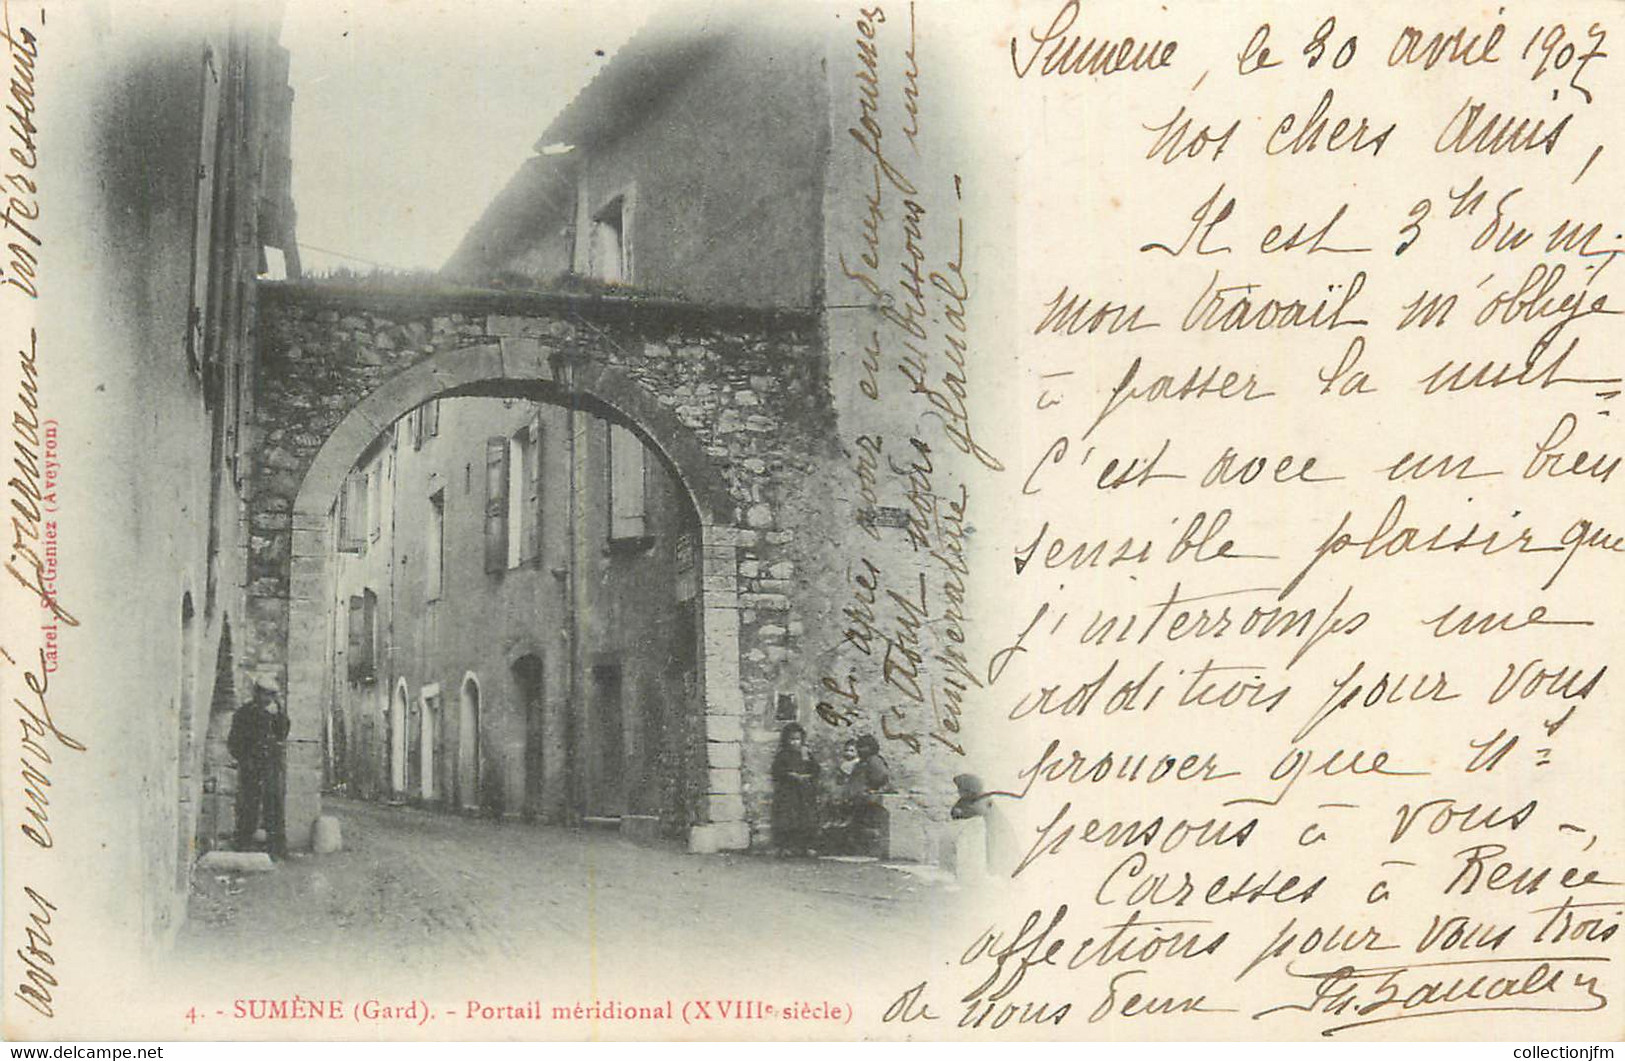 Sumène, le 30 avril 1907
Nos chers Amis,
Il est 3h du m.
mon travail m'oblige
à passer la nuit =
C'est avec un bien
sensible plaisir que
j'interromps une
addition pour vous
prouver que ns =
pensons à vous -,
Caresses à Renée
affections pour vous trois
de nous deux
P.S. après avoir eu deux journées
d'Août, nous subissons une
température glaciale -
avons envoyé journaux intéressants -
Carel, St-Geniez (Aveyron)
4. - SUMÈNE (Gard). - Portail méridional (XVIIIe siècle)
collectionjfm